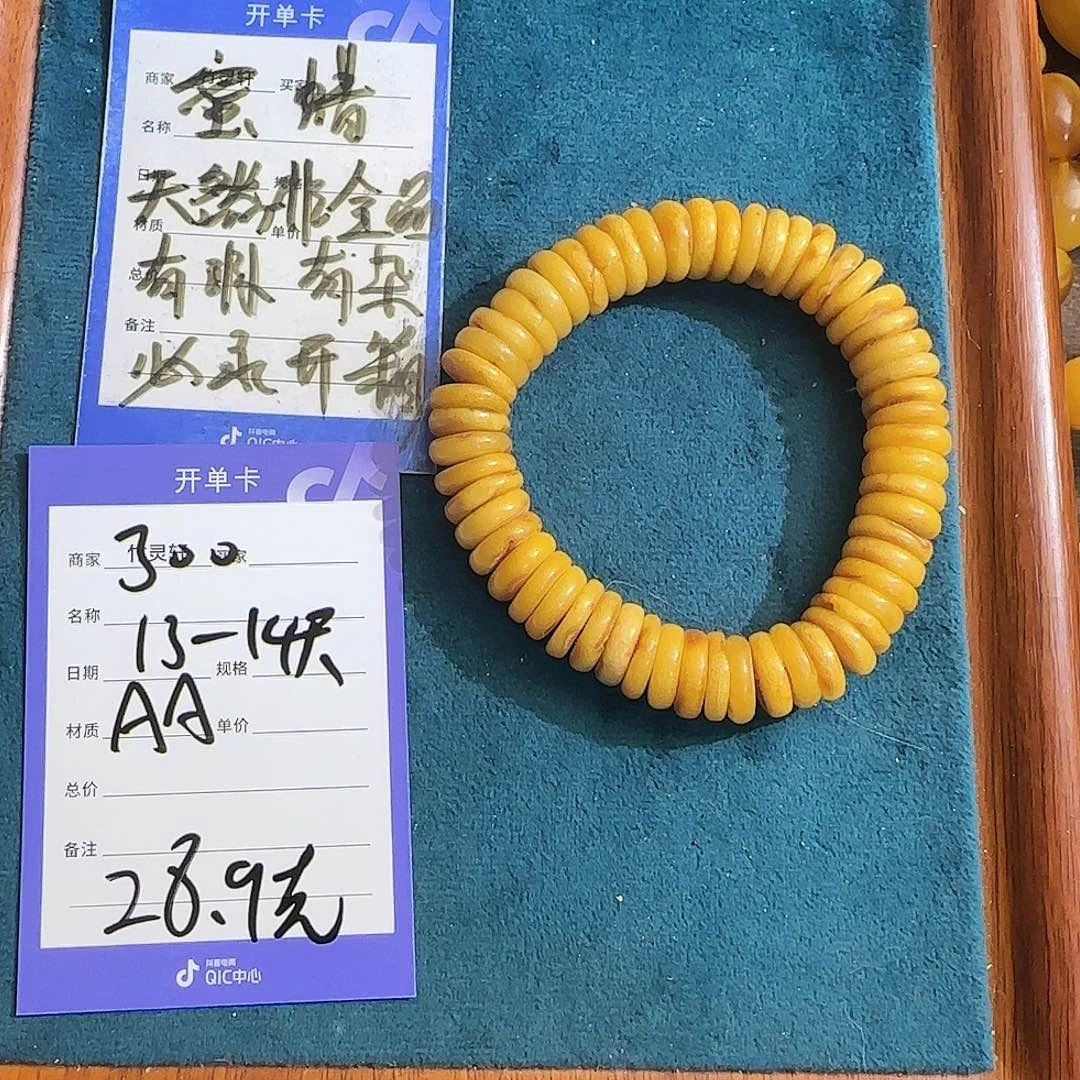 开单卡
商家 买家
蜜蜡
名称
日期
天然非全品
材质 单价
总价
有眼 有杂
备注
必录开箱
抖音电商
QIC中心
开单卡
商家 竹灵轩 买家
300
名称
13-14尺
日期 规格
AA
材质 单价
总价
备注
28.9克
抖音电商
QIC中心